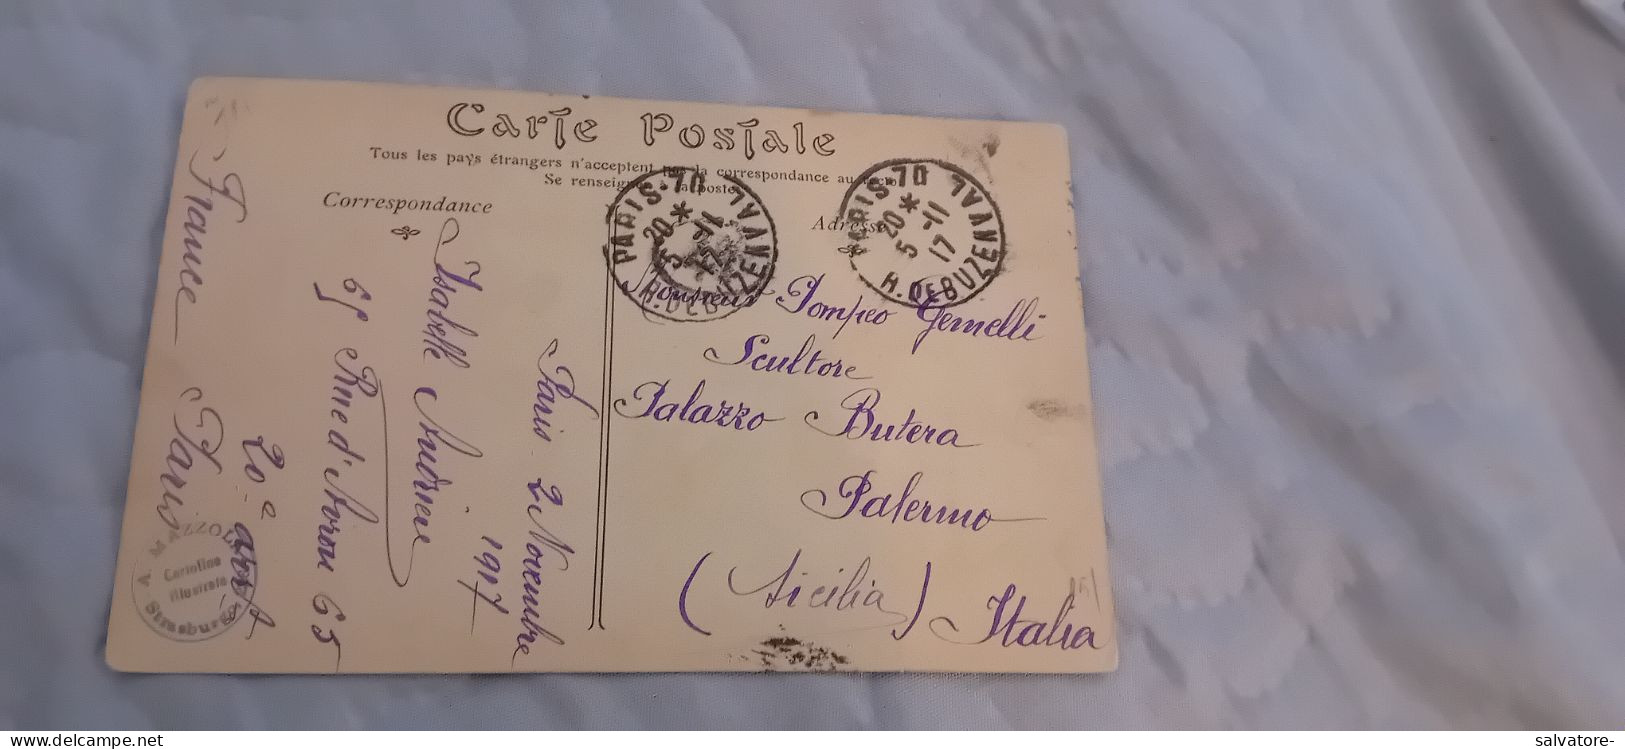 Carte Postale
Tous les pays étrangers n'acceptent pas la correspondance au recto
Se renseigner à la poste
Correspondance
Adresse
PARIS-70
20*
5 -11
17
R. DEBUZENVAL
PARIS-70
20*
5 -11
17
R. DEBUZENVAL
Monsieur Pompeo Gemelli
Scultore
Palazzo Butera
Palermo
(Sicilia) Italia
Paris 2 Novembre
1917
Isabelle
65 Rue d' 65
20.e arr.t
France Paris
A. MAZZOLA
Cartoline
Illustrate
Strasburgo
www.delcampe.net
salvatore-